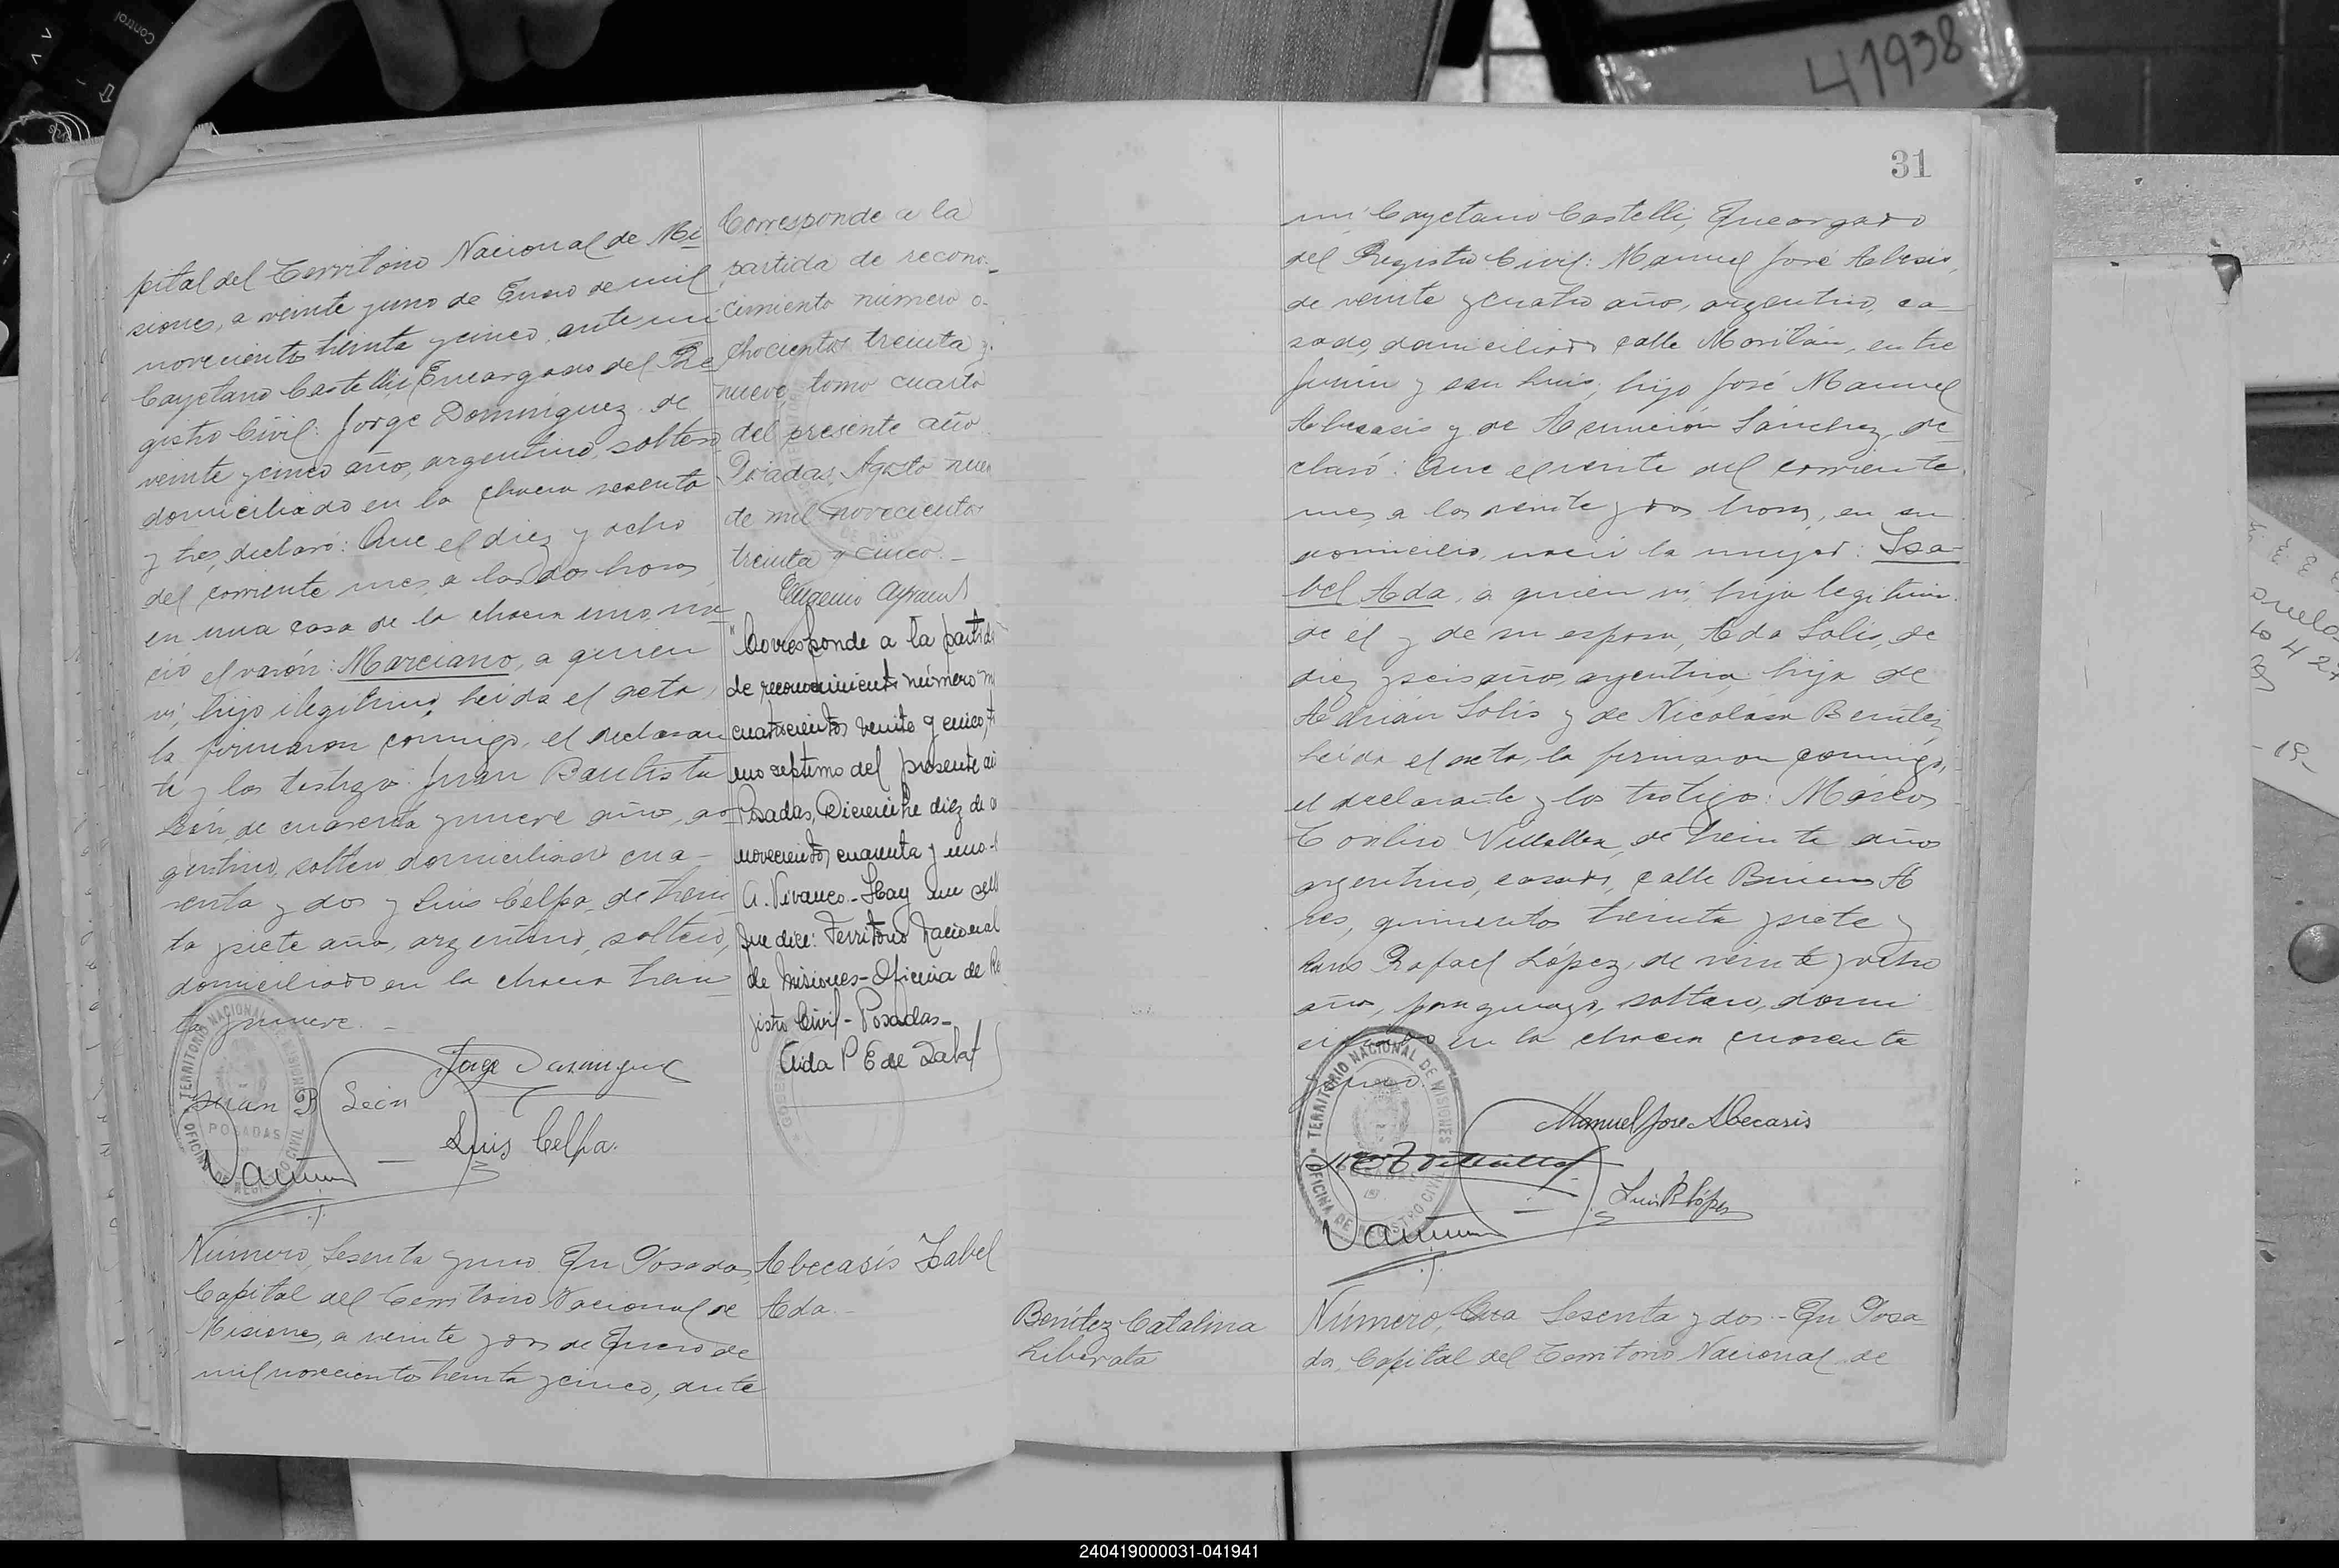 Control
41938
pital del Territorio Nacional de Mi
siones, a veinte y uno de Enero de mil
novecientos treinta y cinco, ante mi
Cayetano Castelli, Encargado del Re
gistro Civil: Jorge Dominguez, de
veinte y cinco años, argentino, soltero,
domiciliado en la chacra sesenta
y tres, declaró: Que el diez y ocho
del corriente mes, a las dos horas,
en una casa de la chacra uno, na
ció el varón: Marciano, a quien
vi, hijo ilegítimo, Leida el acta,
la firmaron conmigo, el declaran
te y los testigos: Juan Bautista
León, de cuarenta y nueve años, ar
gentino, soltero, domiciliado cua-
renta y dos y Luis Celpa, de trein
ta y siete años, argentino, soltero,
domiciliado en la chacra trein
ta y nueve. -
Jorge Dominguez
Juan B León
Luis Celpa.
TERRITORIO NACIONAL DE MISIONES
POSADAS
OFICINA DE REGISTRO CIVIL
Número, Sesenta y uno. En Posadas,
Capital del Territorio Nacional de
Misiones, a veinte y dos de Enero de
mil novecientos treinta y cinco, ante
Corresponde a la
partida de recono-
cimiento número o-
chocientos treinta y
nueve, tomo cuarto
del presente año.
Posadas, Agosto nueve
de mil novecientos
treinta y cinco. -
Eugenio
"Corresponde a la partida
de reconocimiento número m
cuatrocientos veinte y cinco, to
mo septimo del presente añ
Posadas, Diciembre diez de
novecientos cuarenta y uno.-
A. Vivanco.- Hay un sello
que dice: Territorio Nacional
de Misiones - Oficina de Re
gistro Civil - Posadas -
Aida P E de
Abecasis Isabel
Ada. -
31
mi Cayetano Castelli, Encargado
del Registro Civil: Manuel José Abecasis,
de veinte y cuatro años, argentino, ca-
sado, domiciliado calle Morilán, entre
Junín y San Luis, hijo José Manuel
Abecasis y de Asunción Sánchez, de
claró: Que el veinte del corriente
mes, a las veinte y dos horas, en su
domicilio, nació la mujer: Isa-
bel Ada, a quien vi, hija legítima
de él y de su esposa, Ada Solis, de
diez y seis años, argentina, hija de
Adrián Solis y de Nicolasa Benitez,
Leida el acta, la firmaron conmigo,
el declarante y los testigos: Márcos
Villalba, de treinta años
argentino, casado, calle Buenos Ai
res, quinientos treinta y siete y
Luis Rafael López, de veinte y ocho
años, paraguayo, soltero, domi
ciliado en la chacra cuarenta
y uno.
Manuel José Abecasis
Luis R López
TERRITORIO NACIONAL DE MISIONES
OFICINA DE REGISTRO CIVIL
Benítez Catalina
Liberata
Número, Sesenta y dos. - En Posa
das, Capital del Territorio Nacional de
240419000031-041941